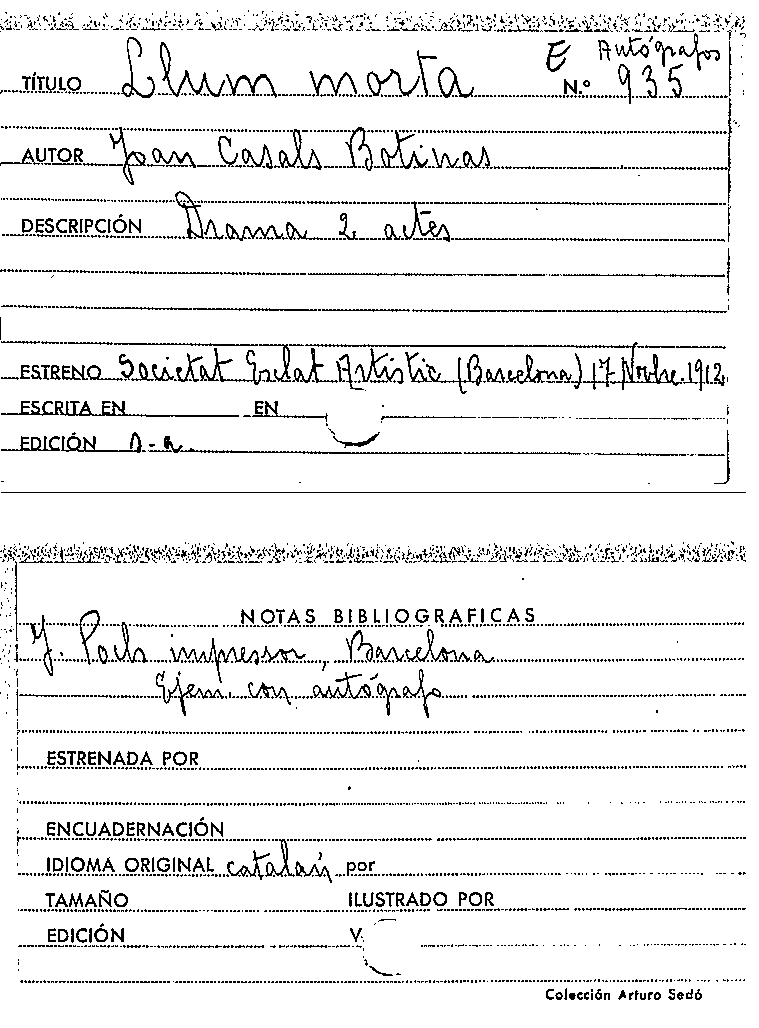 E Autógrafos
TÍTULO Llum morta N.º 935
AUTOR Joan Casals Botinas
DESCRIPCIÓN Drama 2 actes
ESTRENO Societat Esclat Artistic (Barcelona) 17 Novbre. 1912
ESCRITA EN EN
EDICIÓN s-a.
NOTAS BIBLIOGRAFICAS
J. Poch impressor, Barcelona
Ejem. con autógrafo
ESTRENADA POR
ENCUADERNACIÓN
IDIOMA ORIGINAL catalán por
TAMAÑO ILUSTRADO POR
EDICIÓN V.
Colección Arturo Sedó